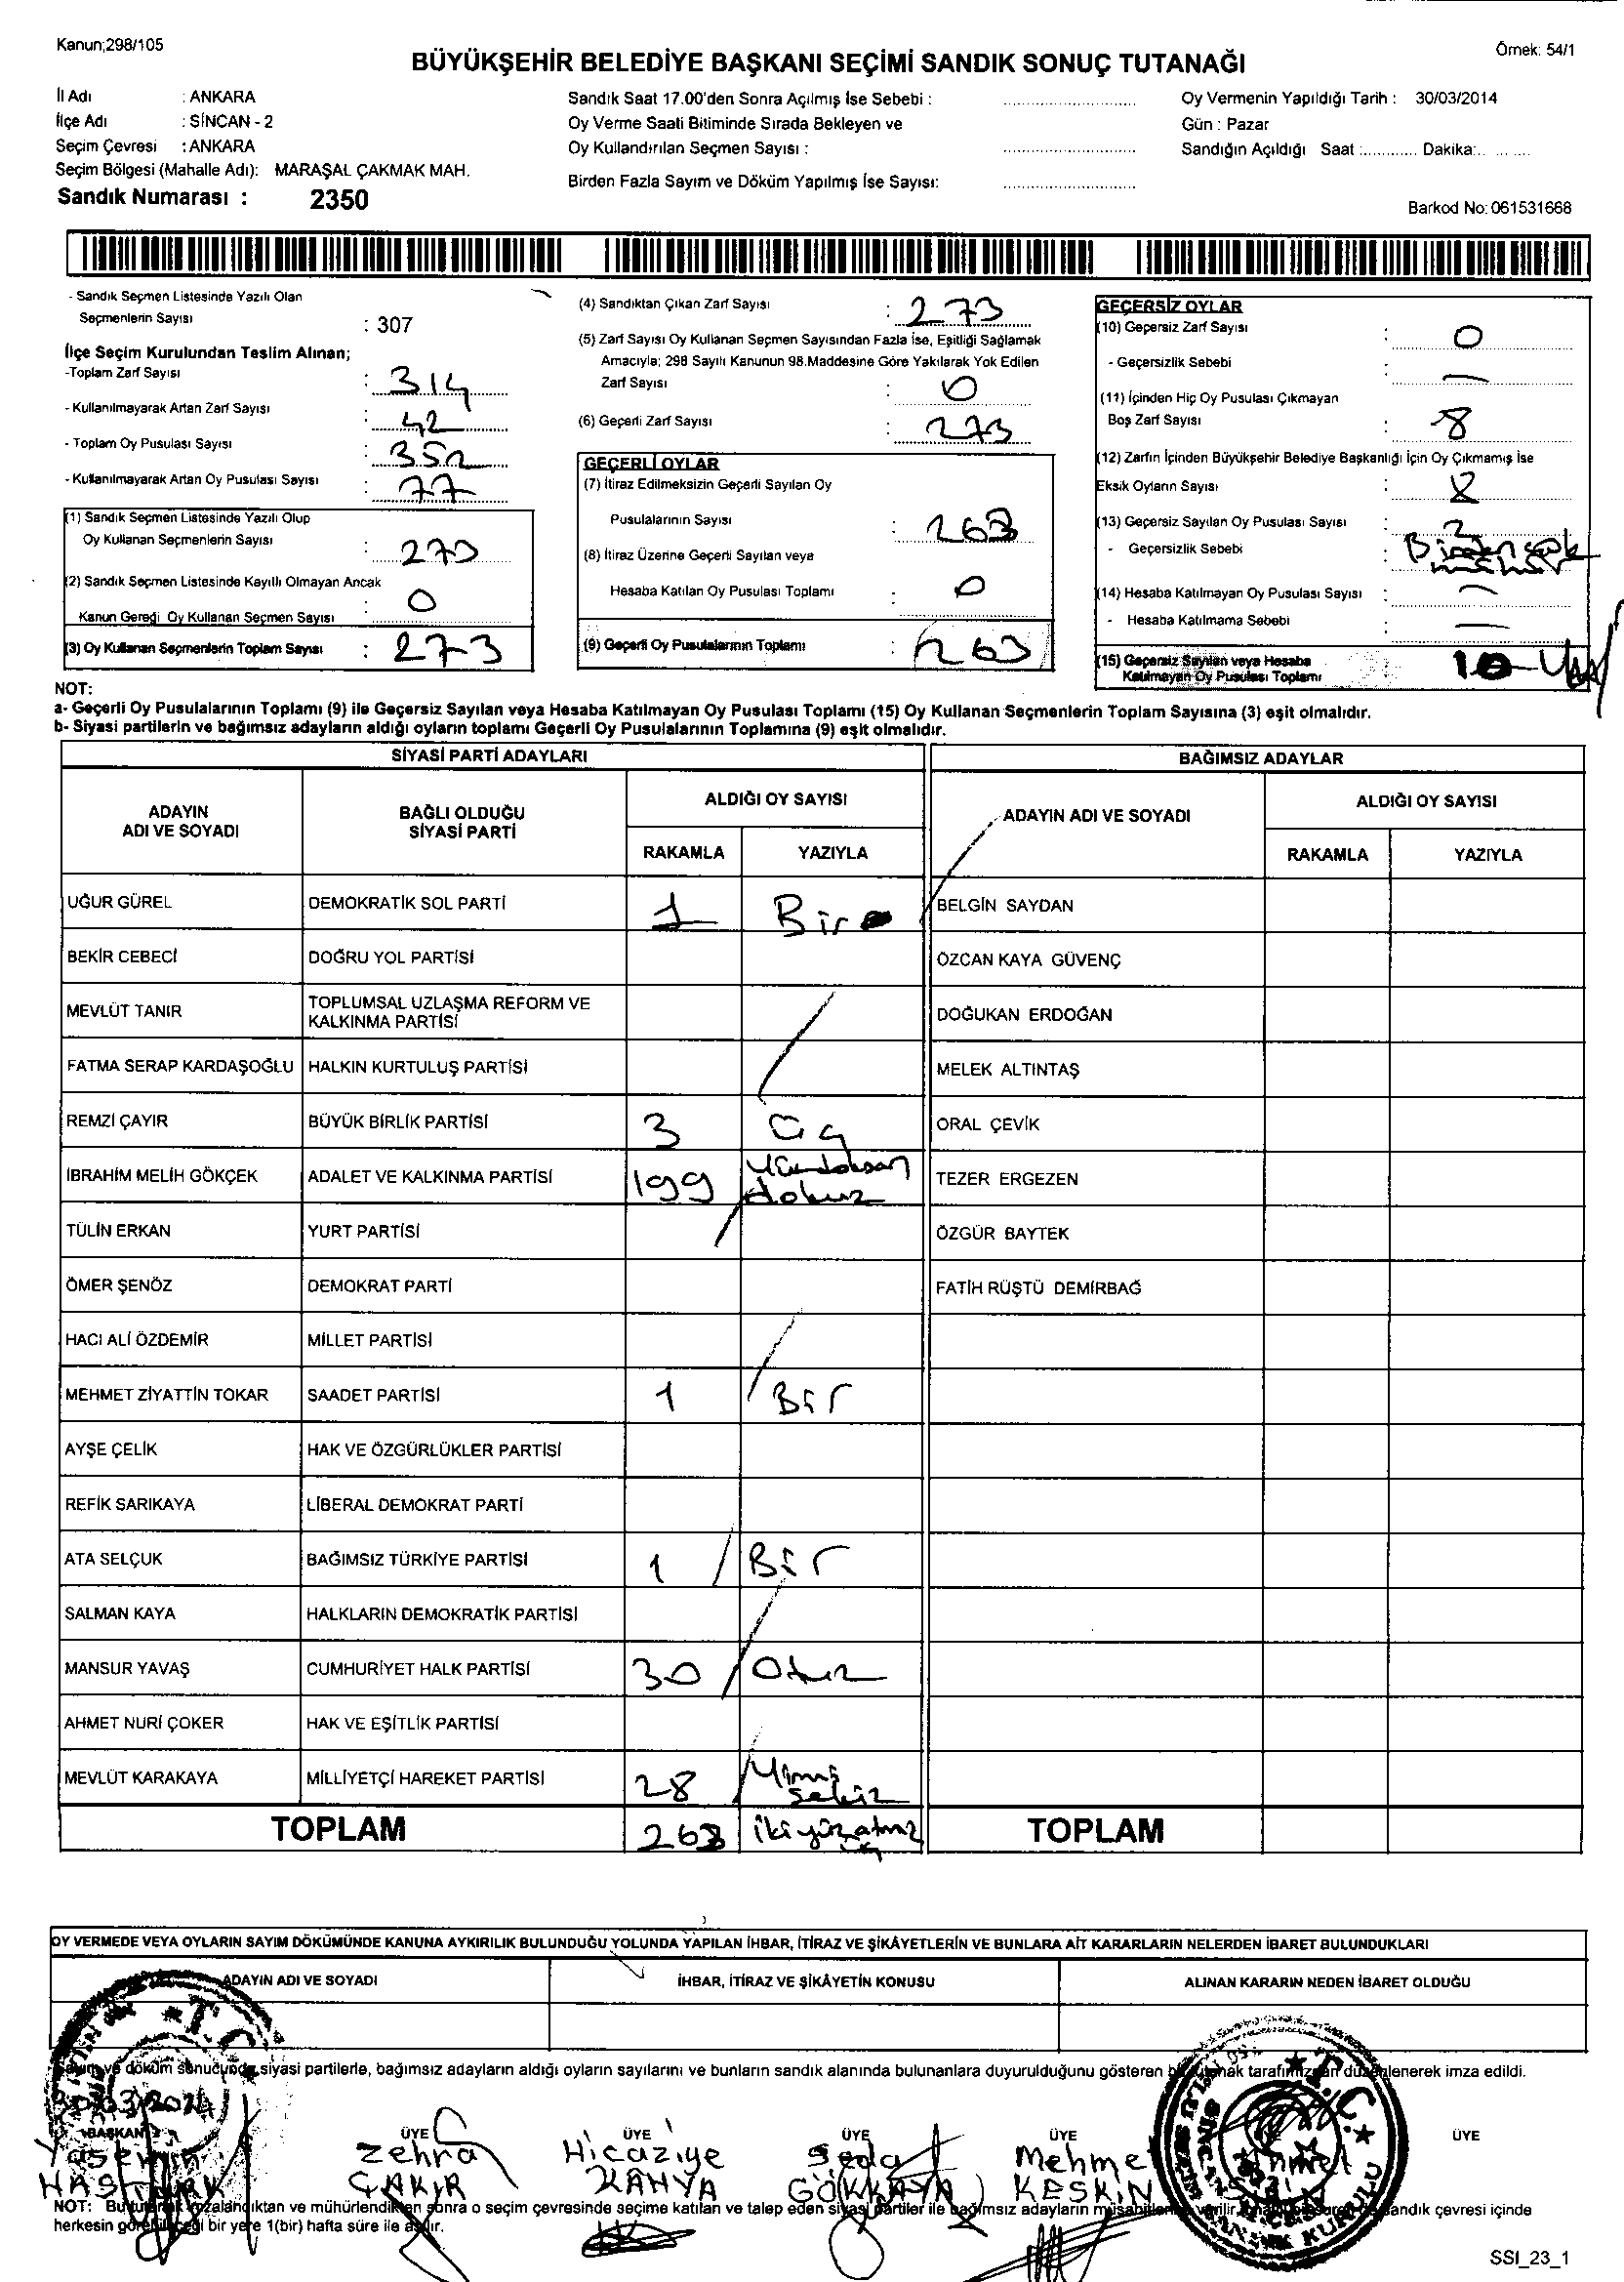 Kanun;298/105
Örnek: 54/1
BÜYÜKŞEHİR BELEDİYE BAŞKANI SEÇİMİ SANDIK SONUÇ TUTANAĞI
İl Adı : ANKARA
İlçe Adı : SİNCAN - 2
Seçim Çevresi : ANKARA
Seçim Bölgesi (Mahalle Adı): MARAŞAL ÇAKMAK MAH.
Sandık Numarası : 2350
Sandık Saat 17.00'den Sonra Açılmış İse Sebebi :
Oy Verme Saati Bitiminde Sırada Bekleyen ve
Oy Kullandırılan Seçmen Sayısı :
Birden Fazla Sayım ve Döküm Yapılmış İse Sayısı:
Oy Vermenin Yapıldığı Tarih : 30/03/2014
Gün : Pazar
Sandığın Açıldığı Saat :............ Dakika:.. ... ...
Barkod No: 061531668
- Sandık Seçmen Listesinde Yazılı Olan
Seçmenlerin Sayısı : 307
İlçe Seçim Kurulundan Teslim Alınan;
-Toplam Zarf Sayısı : 314
- Kullanılmayarak Artan Zarf Sayısı : 42
- Toplam Oy Pusulası Sayısı : 352
- Kullanılmayarak Artan Oy Pusulası Sayısı : 77
(1) Sandık Seçmen Listesinde Yazılı Olup
Oy Kullanan Seçmenlerin Sayısı : 273
(2) Sandık Seçmen Listesinde Kayıtlı Olmayan Ancak
Kanun Gereği Oy Kullanan Seçmen Sayısı : 0
(3) Oy Kullanan Seçmenlerin Toplam Sayısı : 273
(4) Sandıktan Çıkan Zarf Sayısı : 273
(5) Zarf Sayısı Oy Kullanan Seçmen Sayısından Fazla İse, Eşitliği Sağlamak
Amacıyla; 298 Sayılı Kanunun 98.Maddesine Göre Yakılarak Yok Edilen
Zarf Sayısı : 0
(6) Geçerli Zarf Sayısı : 273
GEÇERLİ OYLAR
(7) İtiraz Edilmeksizin Geçerli Sayılan Oy
Pusulalarının Sayısı : 263
(8) İtiraz Üzerine Geçerli Sayılan veya
Hesaba Katılan Oy Pusulası Toplamı : 0
(9) Geçerli Oy Pusulalarının Toplamı : 263
GEÇERSİZ OYLAR
(10) Geçersiz Zarf Sayısı : 0
- Geçersizlik Sebebi : —
(11) İçinden Hiç Oy Pusulası Çıkmayan
Boş Zarf Sayısı : 8
(12) Zarfın İçinden Büyükşehir Belediye Başkanlığı İçin Oy Çıkmamış İse
Eksik Oyların Sayısı :
(13) Geçersiz Sayılan Oy Pusulası Sayısı : 2
- Geçersizlik Sebebi :
(14) Hesaba Katılmayan Oy Pusulası Sayısı : —
- Hesaba Katılmama Sebebi : —
(15) Geçersiz Sayılan veya Hesaba
Katılmayan Oy Pusulası Toplamı 10
NOT:
a- Geçerli Oy Pusulalarının Toplamı (9) ile Geçersiz Sayılan veya Hesaba Katılmayan Oy Pusulası Toplamı (15) Oy Kullanan Seçmenlerin Toplam Sayısına (3) eşit olmalıdır.
b- Siyasi partilerin ve bağımsız adayların aldığı oyların toplamı Geçerli Oy Pusulalarının Toplamına (9) eşit olmalıdır.
SİYASİ PARTİ ADAYLARI
ADAYIN ADI VE SOYADI
BAĞLI OLDUĞU SİYASİ PARTİ
ALDIĞI OY SAYISI
RAKAMLA YAZIYLA
UĞUR GÜREL DEMOKRATİK SOL PARTİ 1 Bir
BEKİR CEBECİ DOĞRU YOL PARTİSİ
MEVLÜT TANIR TOPLUMSAL UZLAŞMA REFORM VE KALKINMA PARTİSİ
FATMA SERAP KARDAŞOĞLU HALKIN KURTULUŞ PARTİSİ
REMZİ ÇAYIR BÜYÜK BİRLİK PARTİSİ 3 Üç
İBRAHİM MELİH GÖKÇEK ADALET VE KALKINMA PARTİSİ 199 Yüzdoksan dokuz
TÜLİN ERKAN YURT PARTİSİ
ÖMER ŞENÖZ DEMOKRAT PARTİ
HACI ALİ ÖZDEMİR MİLLET PARTİSİ
MEHMET ZİYATTİN TOKAR SAADET PARTİSİ 1 Bir
AYŞE ÇELİK HAK VE ÖZGÜRLÜKLER PARTİSİ
REFİK SARIKAYA LİBERAL DEMOKRAT PARTİ
ATA SELÇUK BAĞIMSIZ TÜRKİYE PARTİSİ 1 Bir
SALMAN KAYA HALKLARIN DEMOKRATİK PARTİSİ
MANSUR YAVAŞ CUMHURİYET HALK PARTİSİ 30 Otuz
AHMET NURİ ÇOKER HAK VE EŞİTLİK PARTİSİ
MEVLÜT KARAKAYA MİLLİYETÇİ HAREKET PARTİSİ 28 Yirmi sekiz
TOPLAM 263 ikiyüzatmış üç
BAĞIMSIZ ADAYLAR
ADAYIN ADI VE SOYADI
ALDIĞI OY SAYISI
RAKAMLA YAZIYLA
BELGİN SAYDAN
ÖZCAN KAYA GÜVENÇ
DOĞUKAN ERDOĞAN
MELEK ALTINTAŞ
ORAL ÇEVİK
TEZER ERGEZEN
ÖZGÜR BAYTEK
FATİH RÜŞTÜ DEMİRBAĞ
TOPLAM
OY VERMEDE VEYA OYLARIN SAYIM DÖKÜMÜNDE KANUNA AYKIRILIK BULUNDUĞU YOLUNDA YAPILAN İHBAR, İTİRAZ VE ŞİKÂYETLERİN VE BUNLARA AİT KARARLARIN NELERDEN İBARET BULUNDUKLARI
ADAYIN ADI VE SOYADI
İHBAR, İTİRAZ VE ŞİKÂYETİN KONUSU
ALINAN KARARIN NEDEN İBARET OLDUĞU
ve döküm sonucunda siyasi partilerle, bağımsız adayların aldığı oyların sayılarını ve bunların sandık alanında bulunanlara duyurulduğunu gösteren bu tutanak tarafımızdan düzenlenerek imza edildi.
30/03/2014
BAŞKAN ÜYE ÜYE ÜYE ÜYE
Yasemin Zehra Hicaziye Seda Mehmet
HASTÜRK ÇAKIR KAHYA GÖKKAYA KESKİN
NOT: Bu tutanak imzalandıktan ve mühürlendikten sonra o seçim çevresinde seçime katılan ve talep eden siyasi partiler ile bağımsız adayların müşahitlerine verilir sandık çevresi içinde
herkesin görebileceği bir yere 1(bir) hafta süre ile asılır.
SSI_23_1